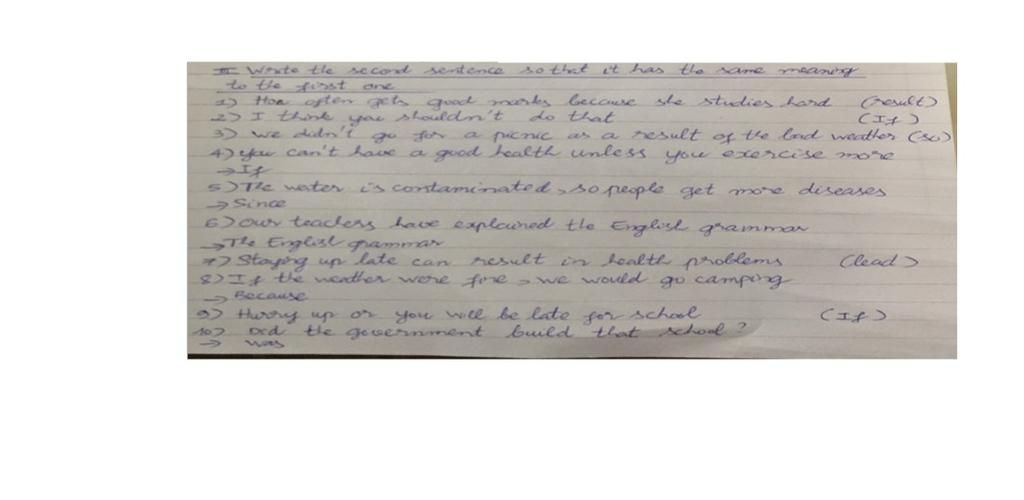 II Write the second sentence so that it has the same meaning
to the first one
1) Hoa often gets good marks because she studies hard (result)
2) I think you shouldn't do that (If)
3) We didn't go for a picnic as a result of the bad weather (so)
4) You can't have a good health unless you exercise more
→ If
5) The water is contaminated, so people get more diseases
→ Since
6) Our teachers have explained the English grammar
→ The English grammar
7) Staying up late can result in health problems (lead)
8) If the weather were fine, we would go camping
→ Because
9) Hurry up or you will be late for school (If)
10) Did the government build that school?
→ Was